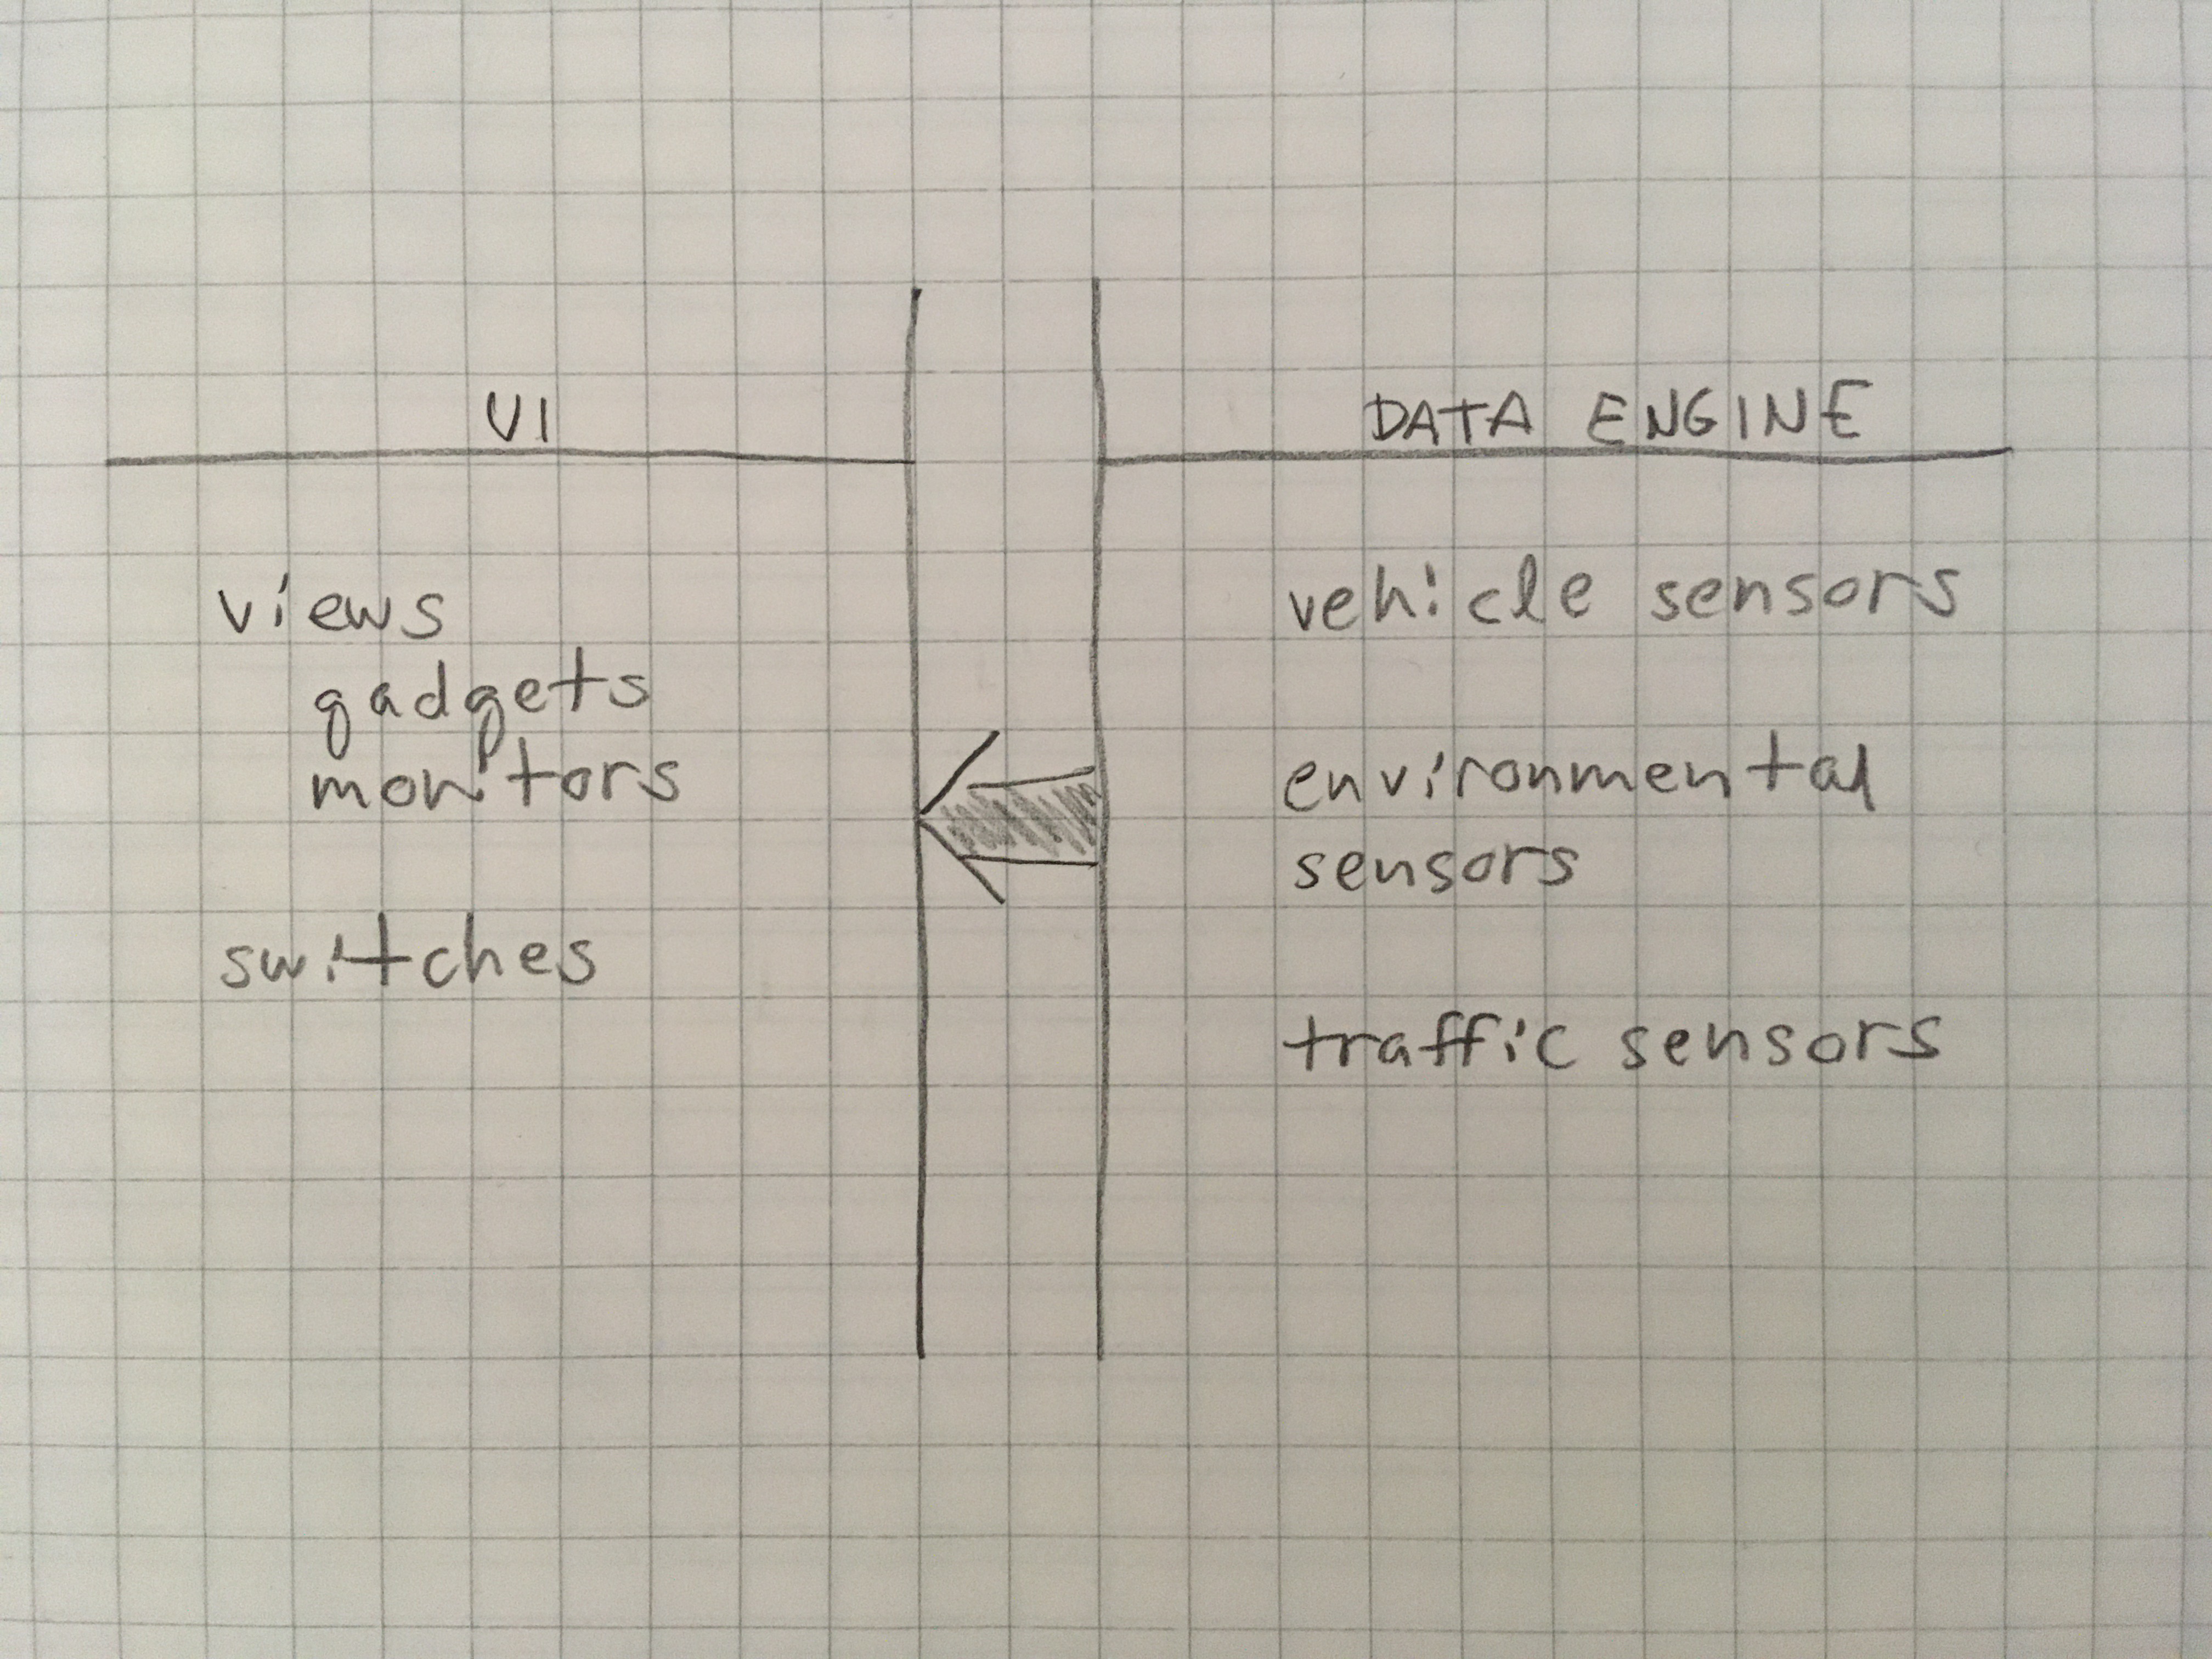 UI
views
gadgets
monitors
switches
DATA ENGINE
vehicle sensors
environmental
sensors
traffic sensors